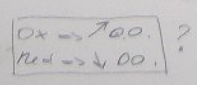 Ox => ↗ O.O. ?
Red => ↓ OO.